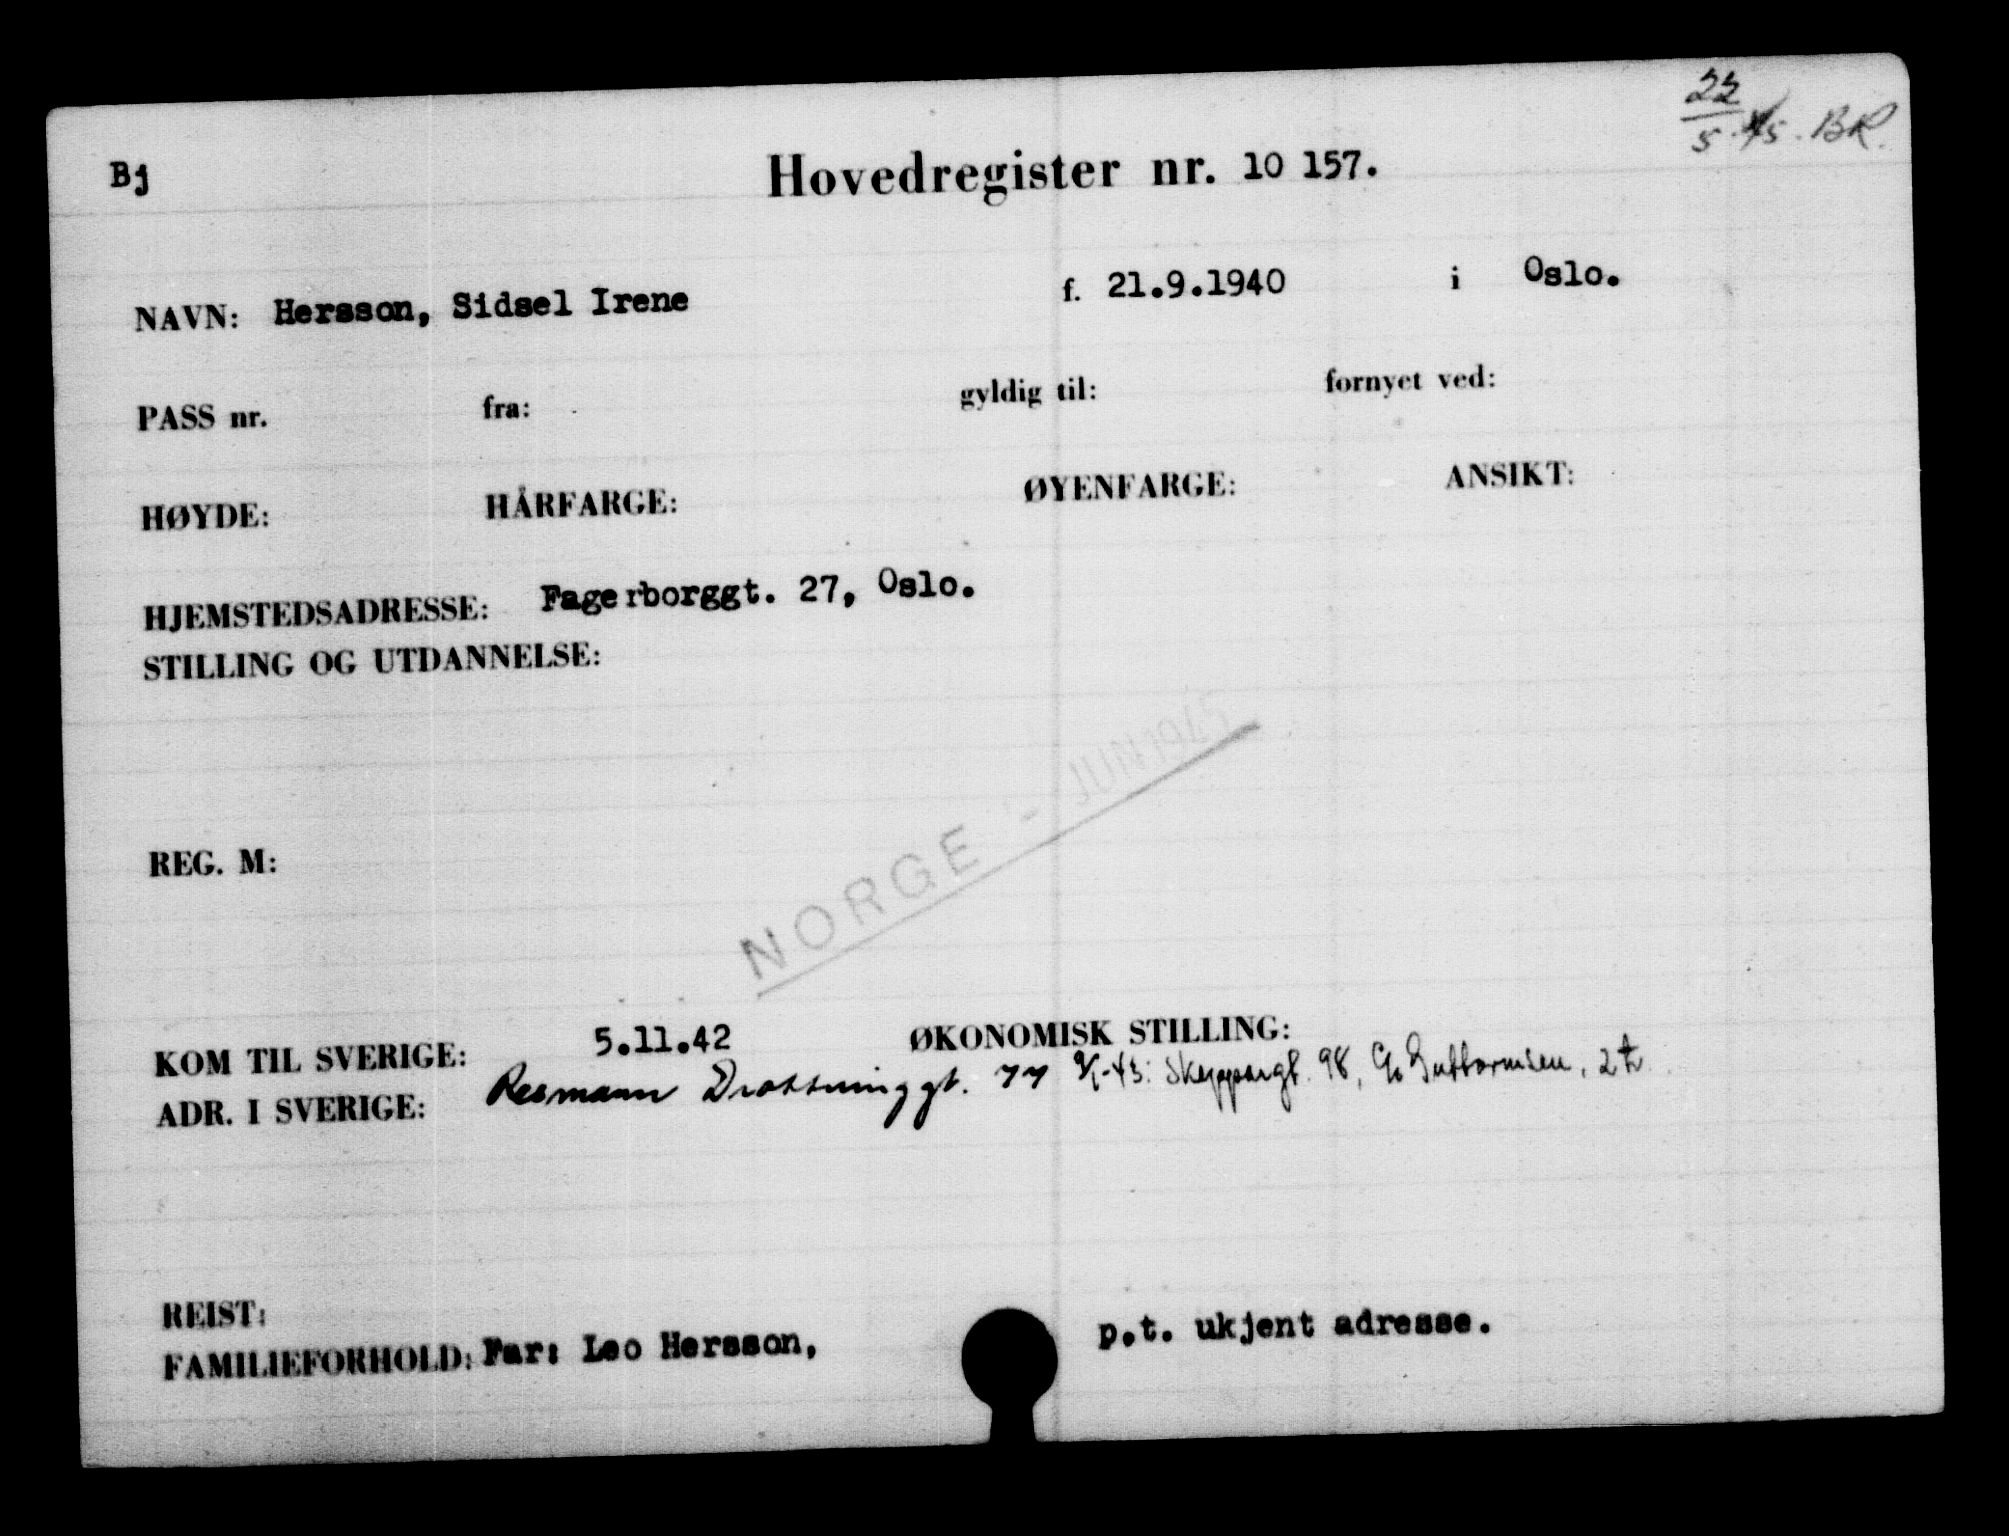 22/5-45. BR.
Bj
Hovedregister nr. 10 157.
NAVN: Hersson, Sidsel Irene f. 21.9.1940 i Oslo.
PASS nr. fra: gyldig til: fornyet ved:
HØYDE: HÅRFARGE: ØYENFARGE: ANSIKT:
HJEMSTEDSADRESSE: Fagerborggt. 27, Oslo.
STILLING OG UTDANNELSE:
NORGE - JUN 1945
REG. M:
KOM TIL SVERIGE: 5.11.42 ØKONOMISK STILLING:
ADR. I SVERIGE: Resmann Drottninggt. 77 9/1-43: Skeppargt. 98, c/o Guttormsen, 2 tr.
REIST:
FAMILIEFORHOLD: Far: Leo Hersson, p.t. ukjent adresse.